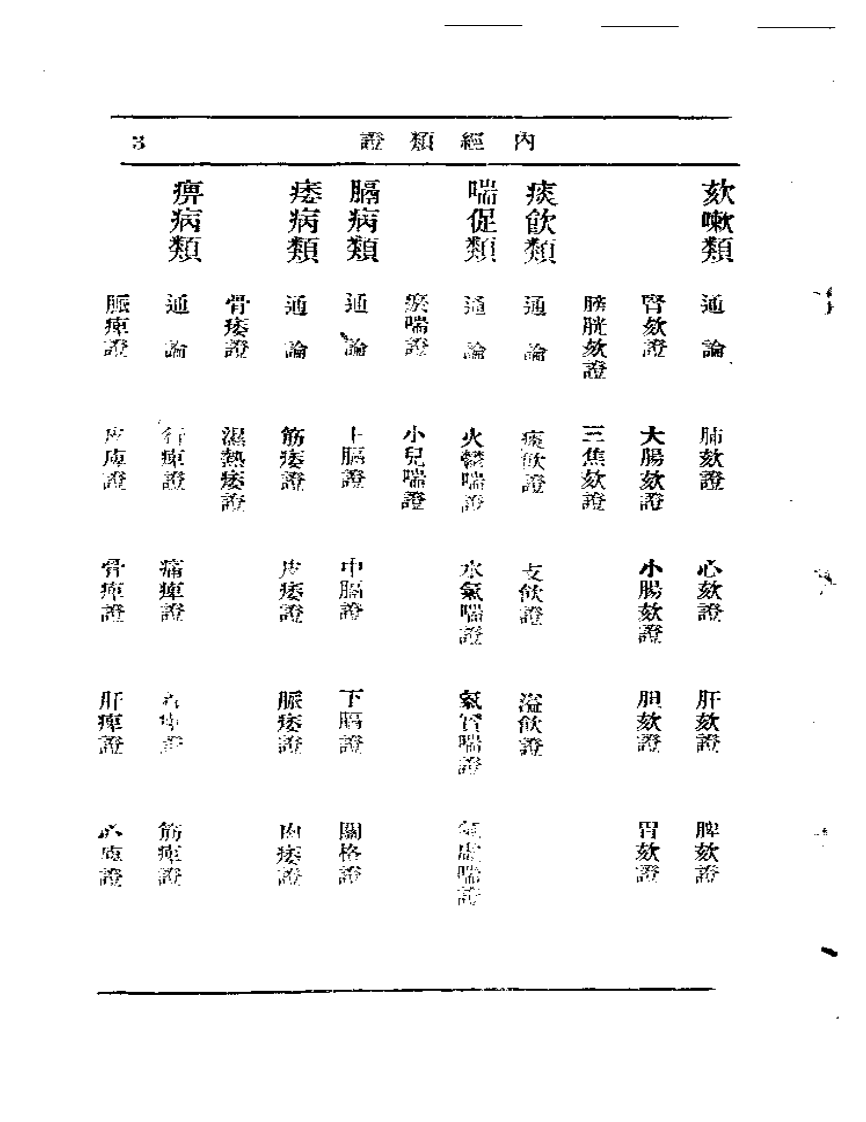 內經類證
3
欬嗽類 通論 肺欬證 心欬證 肝欬證 脾欬證
腎欬證 大腸欬證 小腸欬證 胆欬證 胃欬證
膀胱欬證 三焦欬證
痰飲類 通論 痰飲證 支飲證 溢飲證
喘促類 通論 火鬱喘證 水氣喘證 氣實喘證 氣虛喘證
瘀喘證 小兒喘證
膈病類 通論 上膈證 中膈證 下膈證 關格證
痿病類 通論 筋痿證 皮痿證 脈痿證 肉痿證
骨痿證 濕熱痿證
痹病類 通論 行痺證 痛痺證 筋痺證
脈痺證 皮痺證 骨痺證 肝痺證 心痺證